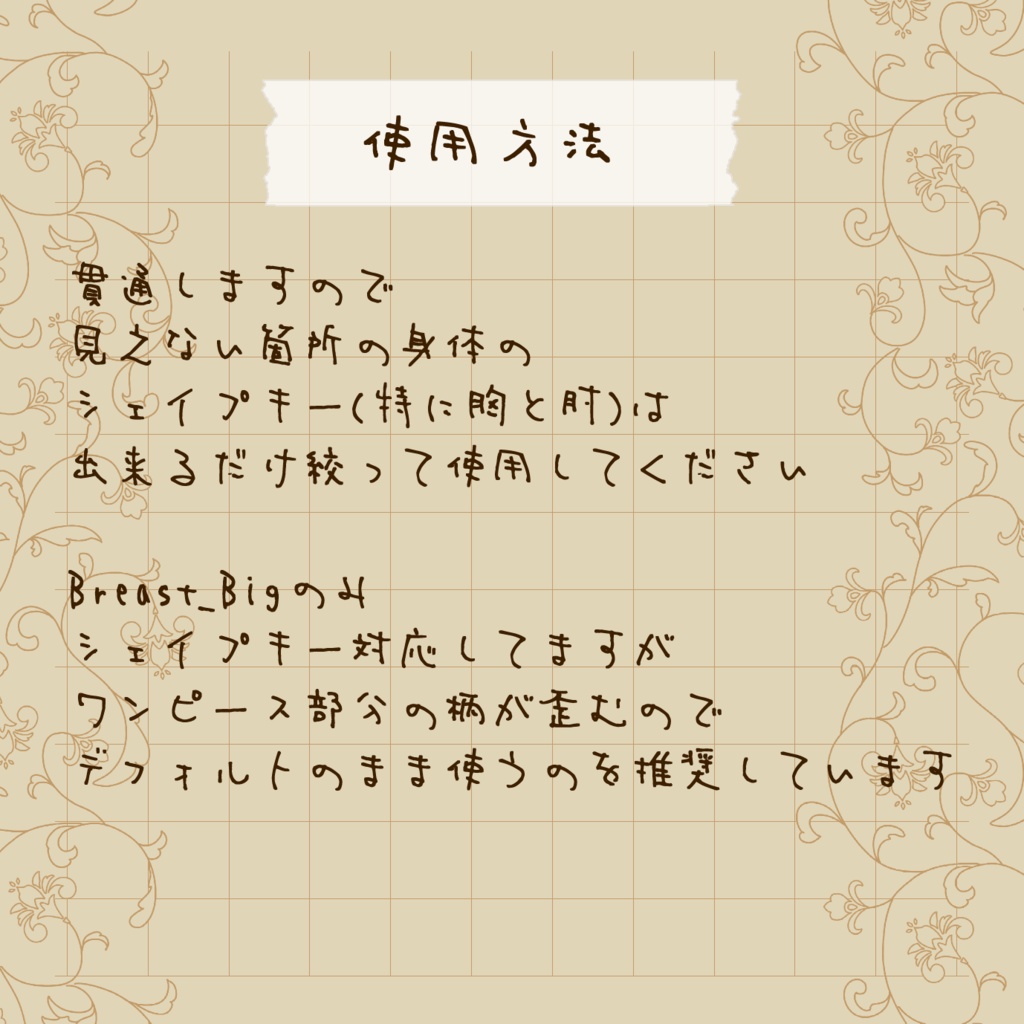 使用方法
貫通しますので
見えない箇所の身体の
シェイプキー(特に胸と肘)は
出来るだけ絞って使用してください
Breast_Bigのみ
シェイプキー対応してますが
ワンピース部分の柄が歪むので
デフォルトのまま使うのを推奨しています